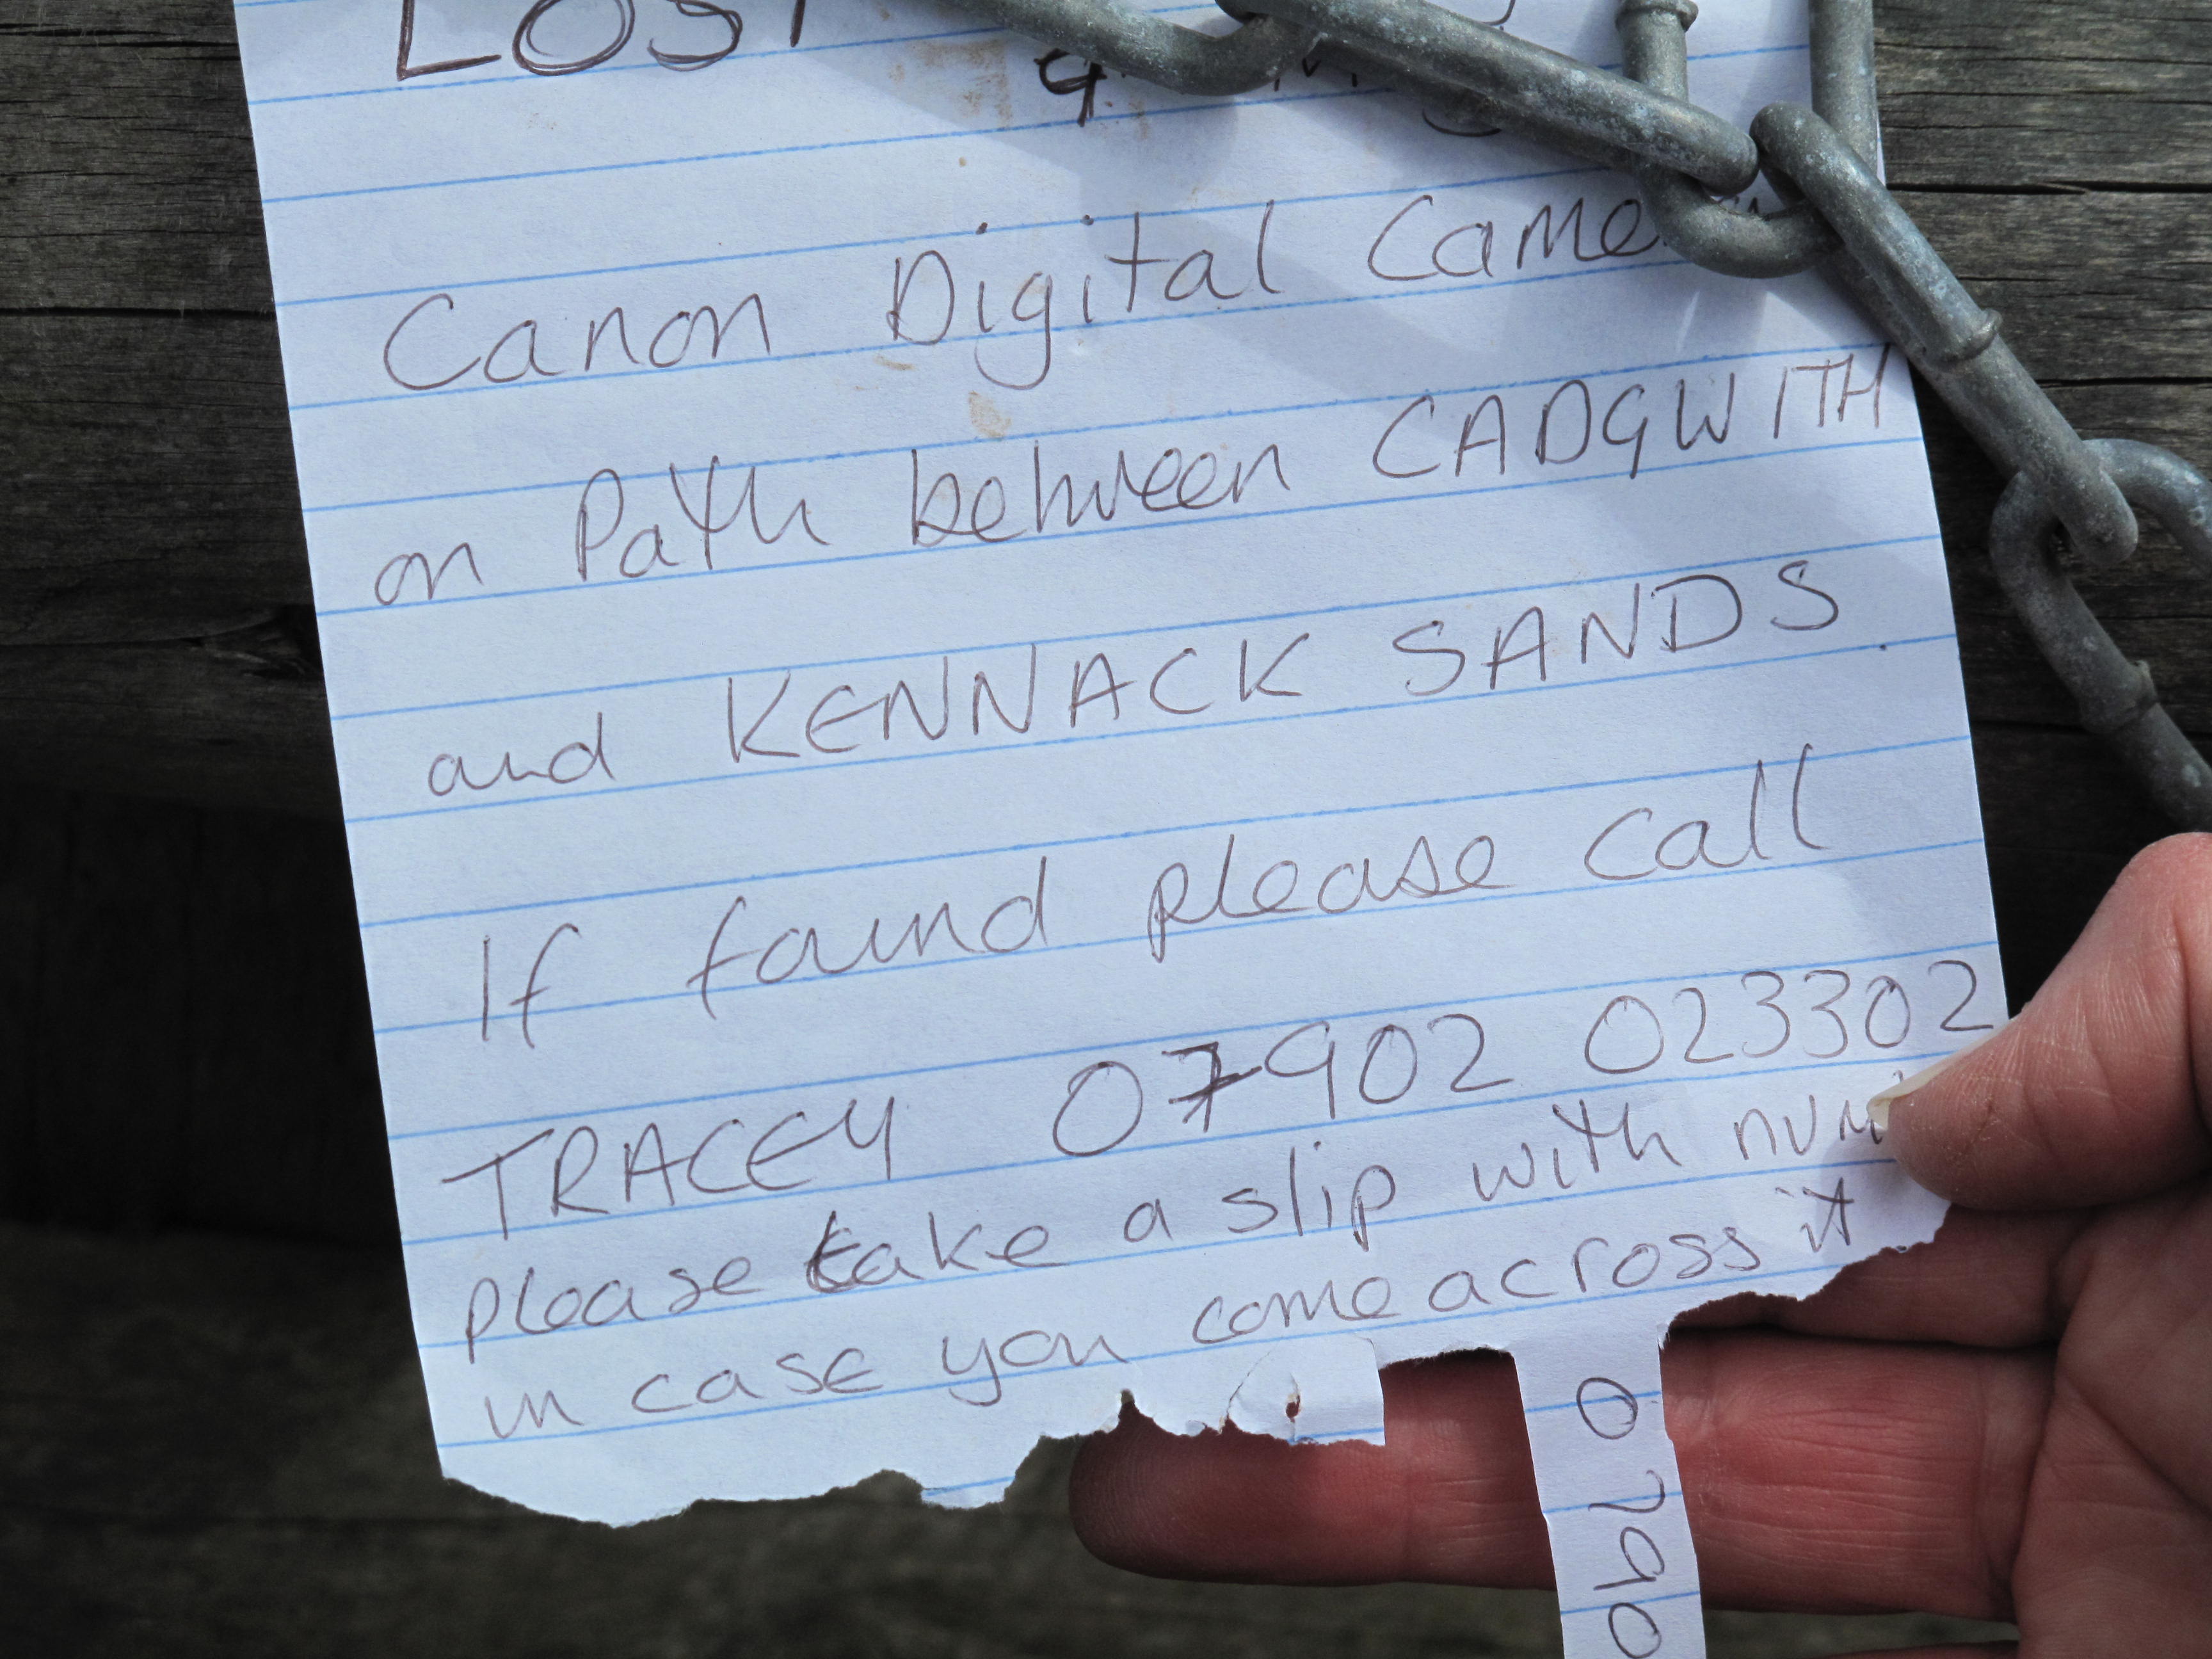 LOST
Canon Digital
on Path between CADGWITH
and KENNACK SANDS
If found please call
TRACEY 07902 023302
please take a slip with
in case you come across it
0790